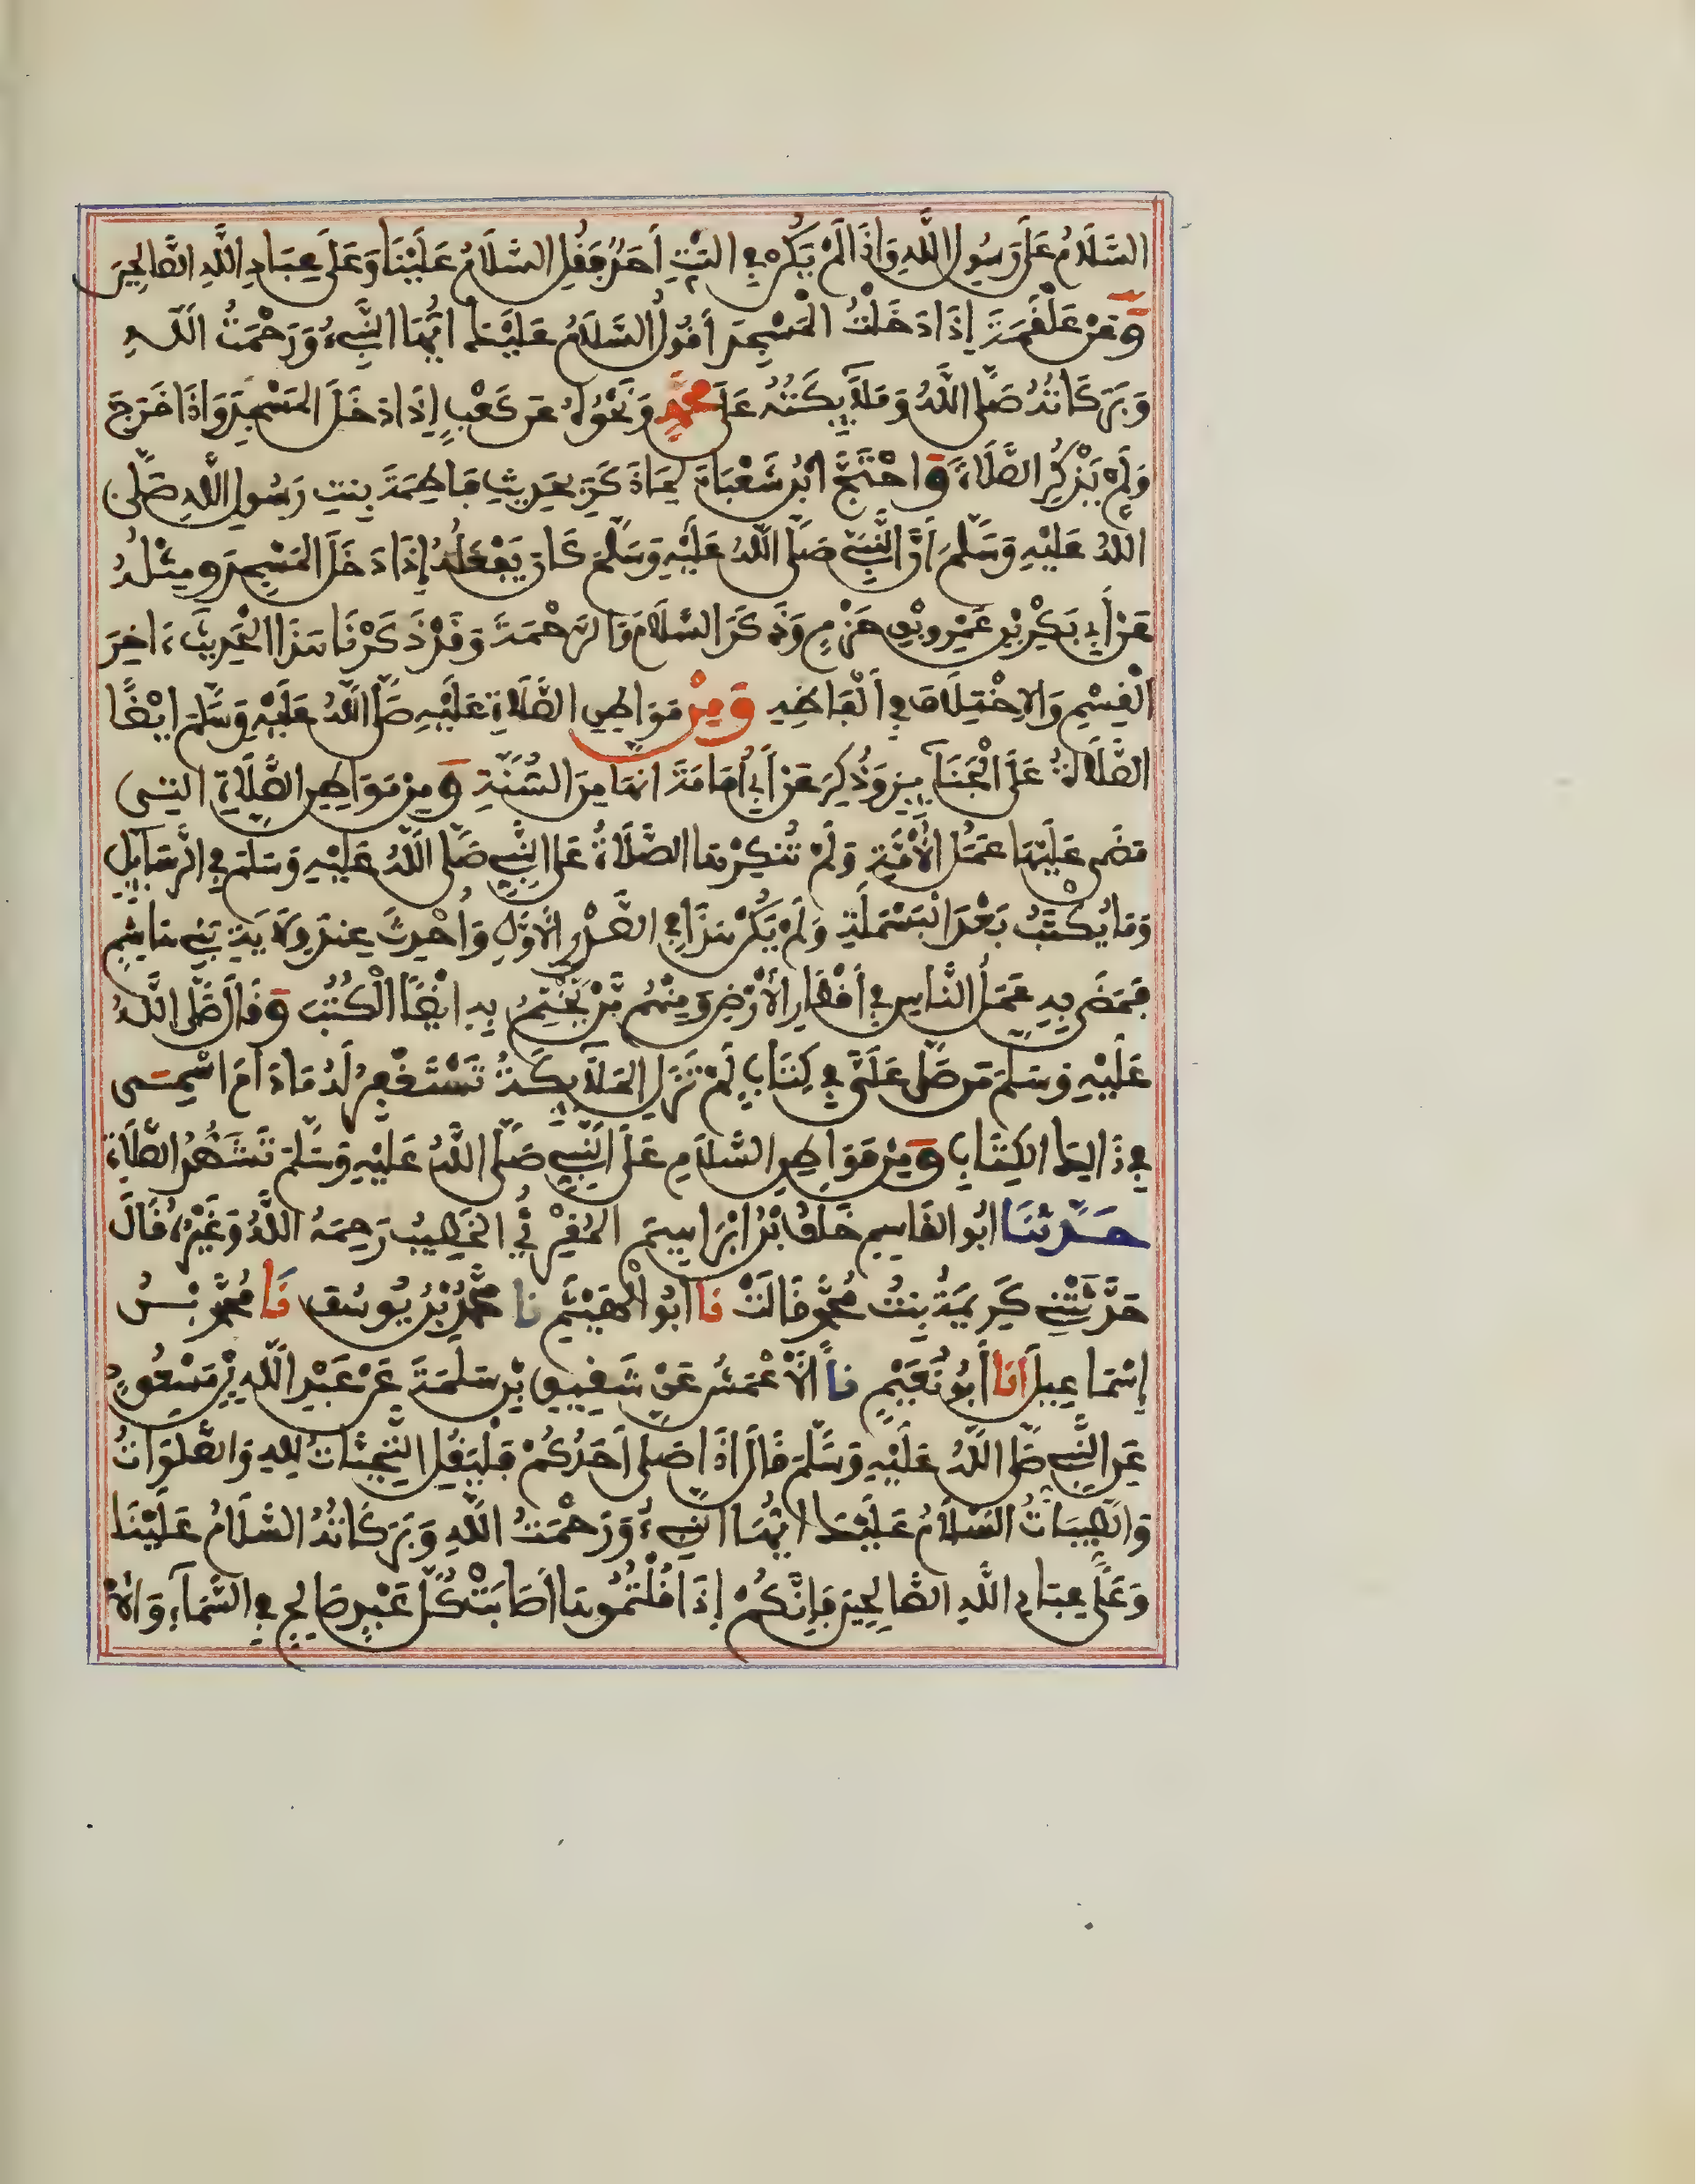 السَّلَامُ عَلَى رَسُولِ اللَّهِ وَإِذَا لَمْ يَكُنْ فِي الْبَيْتِ أَحَدٌ فَقُلِ السَّلَامُ عَلَيْنَا وَعَلَى عِبَادِ اللَّهِ الصَّالِحِينَ
وَعَنْ عَلْقَمَةَ إِذَا دَخَلْتُ الْمَسْجِدَ أَقُولُ السَّلَامُ عَلَيْكَ أَيُّهَا النَّبِيءُ وَرَحْمَتُ اللَّهِ
وَبَرَكَاتُهُ صَلَّى اللَّهُ وَمَلَآيِكَتُهُ عَلَى مُحَمَّدٍ وَنَحْوُهُ عَنْ كَعْبٍ إِذَا دَخَلَ الْمَسْجِدَ وَإِذَا خَرَجَ
وَلَمْ يَذْكُرِ الصَّلَاةَ وَاحْتَجَّ ابْنُ شَعْبَانَ لِمَا ذَكَرَ بِحَدِيثِ فَاطِمَةَ بِنْتِ رَسُولِ اللَّهِ صَلَّى
اللَّهُ عَلَيْهِ وَسَلَّمَ أَنَّ النَّبِيَّ صَلَّى اللَّهُ عَلَيْهِ وَسَلَّمَ كَانَ يَفْعَلُهُ إِذَا دَخَلَ الْمَسْجِدَ وَمِثْلُهُ
عَنْ أَبِي بَكْرِ بْنِ عَمْرِو بْنِ حَزْمٍ وَذَكَرَ السَّلَامَ وَالرَّحْمَةَ وَقَدْ ذَكَرْنَا هَذَا الْحَدِيثَ ءَاخِرَ
الْقِسْمِ وَالِاخْتِلَافَ فِي أَلْفَاظِهِ وَمِنْ مَوَاطِنِ الصَّلَاةِ عَلَيْهِ صَلَّى اللَّهُ عَلَيْهِ وَسَلَّمَ أَيْضًا
الصَّلَاةُ عَلَى الْجَنَآيِزِ وَذُكِرَ عَنْ أَبِي أُمَامَةَ أَنَّهَا مِنَ السُّنَّةِ وَمِنْ مَوَاطِنِ الصَّلَاةِ الَّتِي
مَضَى عَلَيْهَا عَمَلُ الْأُمَّةِ وَلَمْ تُنْكِرْهَا الصَّلَاةُ عَلَى النَّبِيِّ صَلَّى اللَّهُ عَلَيْهِ وَسَلَّمَ فِي الرَّسَآيِلِ
وَمَا يُكْتَبُ بَعْدَ الْبَسْمَلَةِ وَلَمْ يَكُنْ هَذَا فِي الصَّدْرِ الْأَوَّلِ وَأُحْدِثَ عِنْدَ وِلَايَةِ بَنِي هَاشِمٍ
فَمَضَى بِهِ عَمَلُ النَّاسِ فِي أَقْطَارِ الْأَرْضِ وَمِنْهُمْ مَّنْ يَخْتِمُ بِهِ أَيْضًا الْكُتُبَ وَقَالَ صَلَّى اللَّهُ
عَلَيْهِ وَسَلَّمَ مَنْ صَلَّى عَلَيَّ فِي كِتَابٍ لَمْ تَزَلِ الْمَلَآيِكَةُ تَسْتَغْفِرُ لَهُ مَا دَامَ اسْمِي
فِي ذَالِكَ الْكِتَابِ وَمِنْ مَوَاطِنِ السَّلَامِ عَلَى النَّبِيِّ صَلَّى اللَّهُ عَلَيْهِ وَسَلَّمَ تَشَهُّدُ الصَّلَاةِ
حَدَّثَنَا أَبُو الْقَاسِمِ خَلَفُ بْنُ ابْرَاهِيمَ الْمُقْرِئُ الْخَطِيبُ رَحِمَهُ اللَّهُ وَغَيْرُهُ قَالَ
حَدَّثَتْنِي كَرِيمَةُ بِنْتُ مُحَمَّدٍ قَالَتْ نَا أَبُو الْهَيْثَمِ نَا مُحَمَّدُ بْنُ يُوسُفَ نَا مُحَمَّدُ بْنُ
إِسْمَاعِيلَ أَنَا أَبُو نُعَيْمٍ نَا الْأَعْمَشُ عَنْ شَقِيقِ بْنِ سَلَمَةَ عَنْ عَبْدِ اللَّهِ بْنِ مَسْعُودٍ
عَنِ النَّبِيِّ صَلَّى اللَّهُ عَلَيْهِ وَسَلَّمَ قَالَ إِذَا صَلَّى أَحَدُكُمْ فَلْيَقُلِ التَّحِيَّاتُ لِلهِ وَالصَّلَوَاتُ
وَالطَّيِّبَاتُ السَّلَامُ عَلَيْكَ أَيُّهَا النَّبِيءُ وَرَحْمَتُ اللَّهِ وَبَرَكَاتُهُ السَّلَامُ عَلَيْنَا
وَعَلَى عِبَادِ اللَّهِ الصَّالِحِينَ فَإِنَّكُمْ إِذَا قُلْتُمُوهَا أَصَابَتْ كُلَّ عَبْدٍ صَالِحٍ فِي السَّمَآءِ وَالْأَرْ